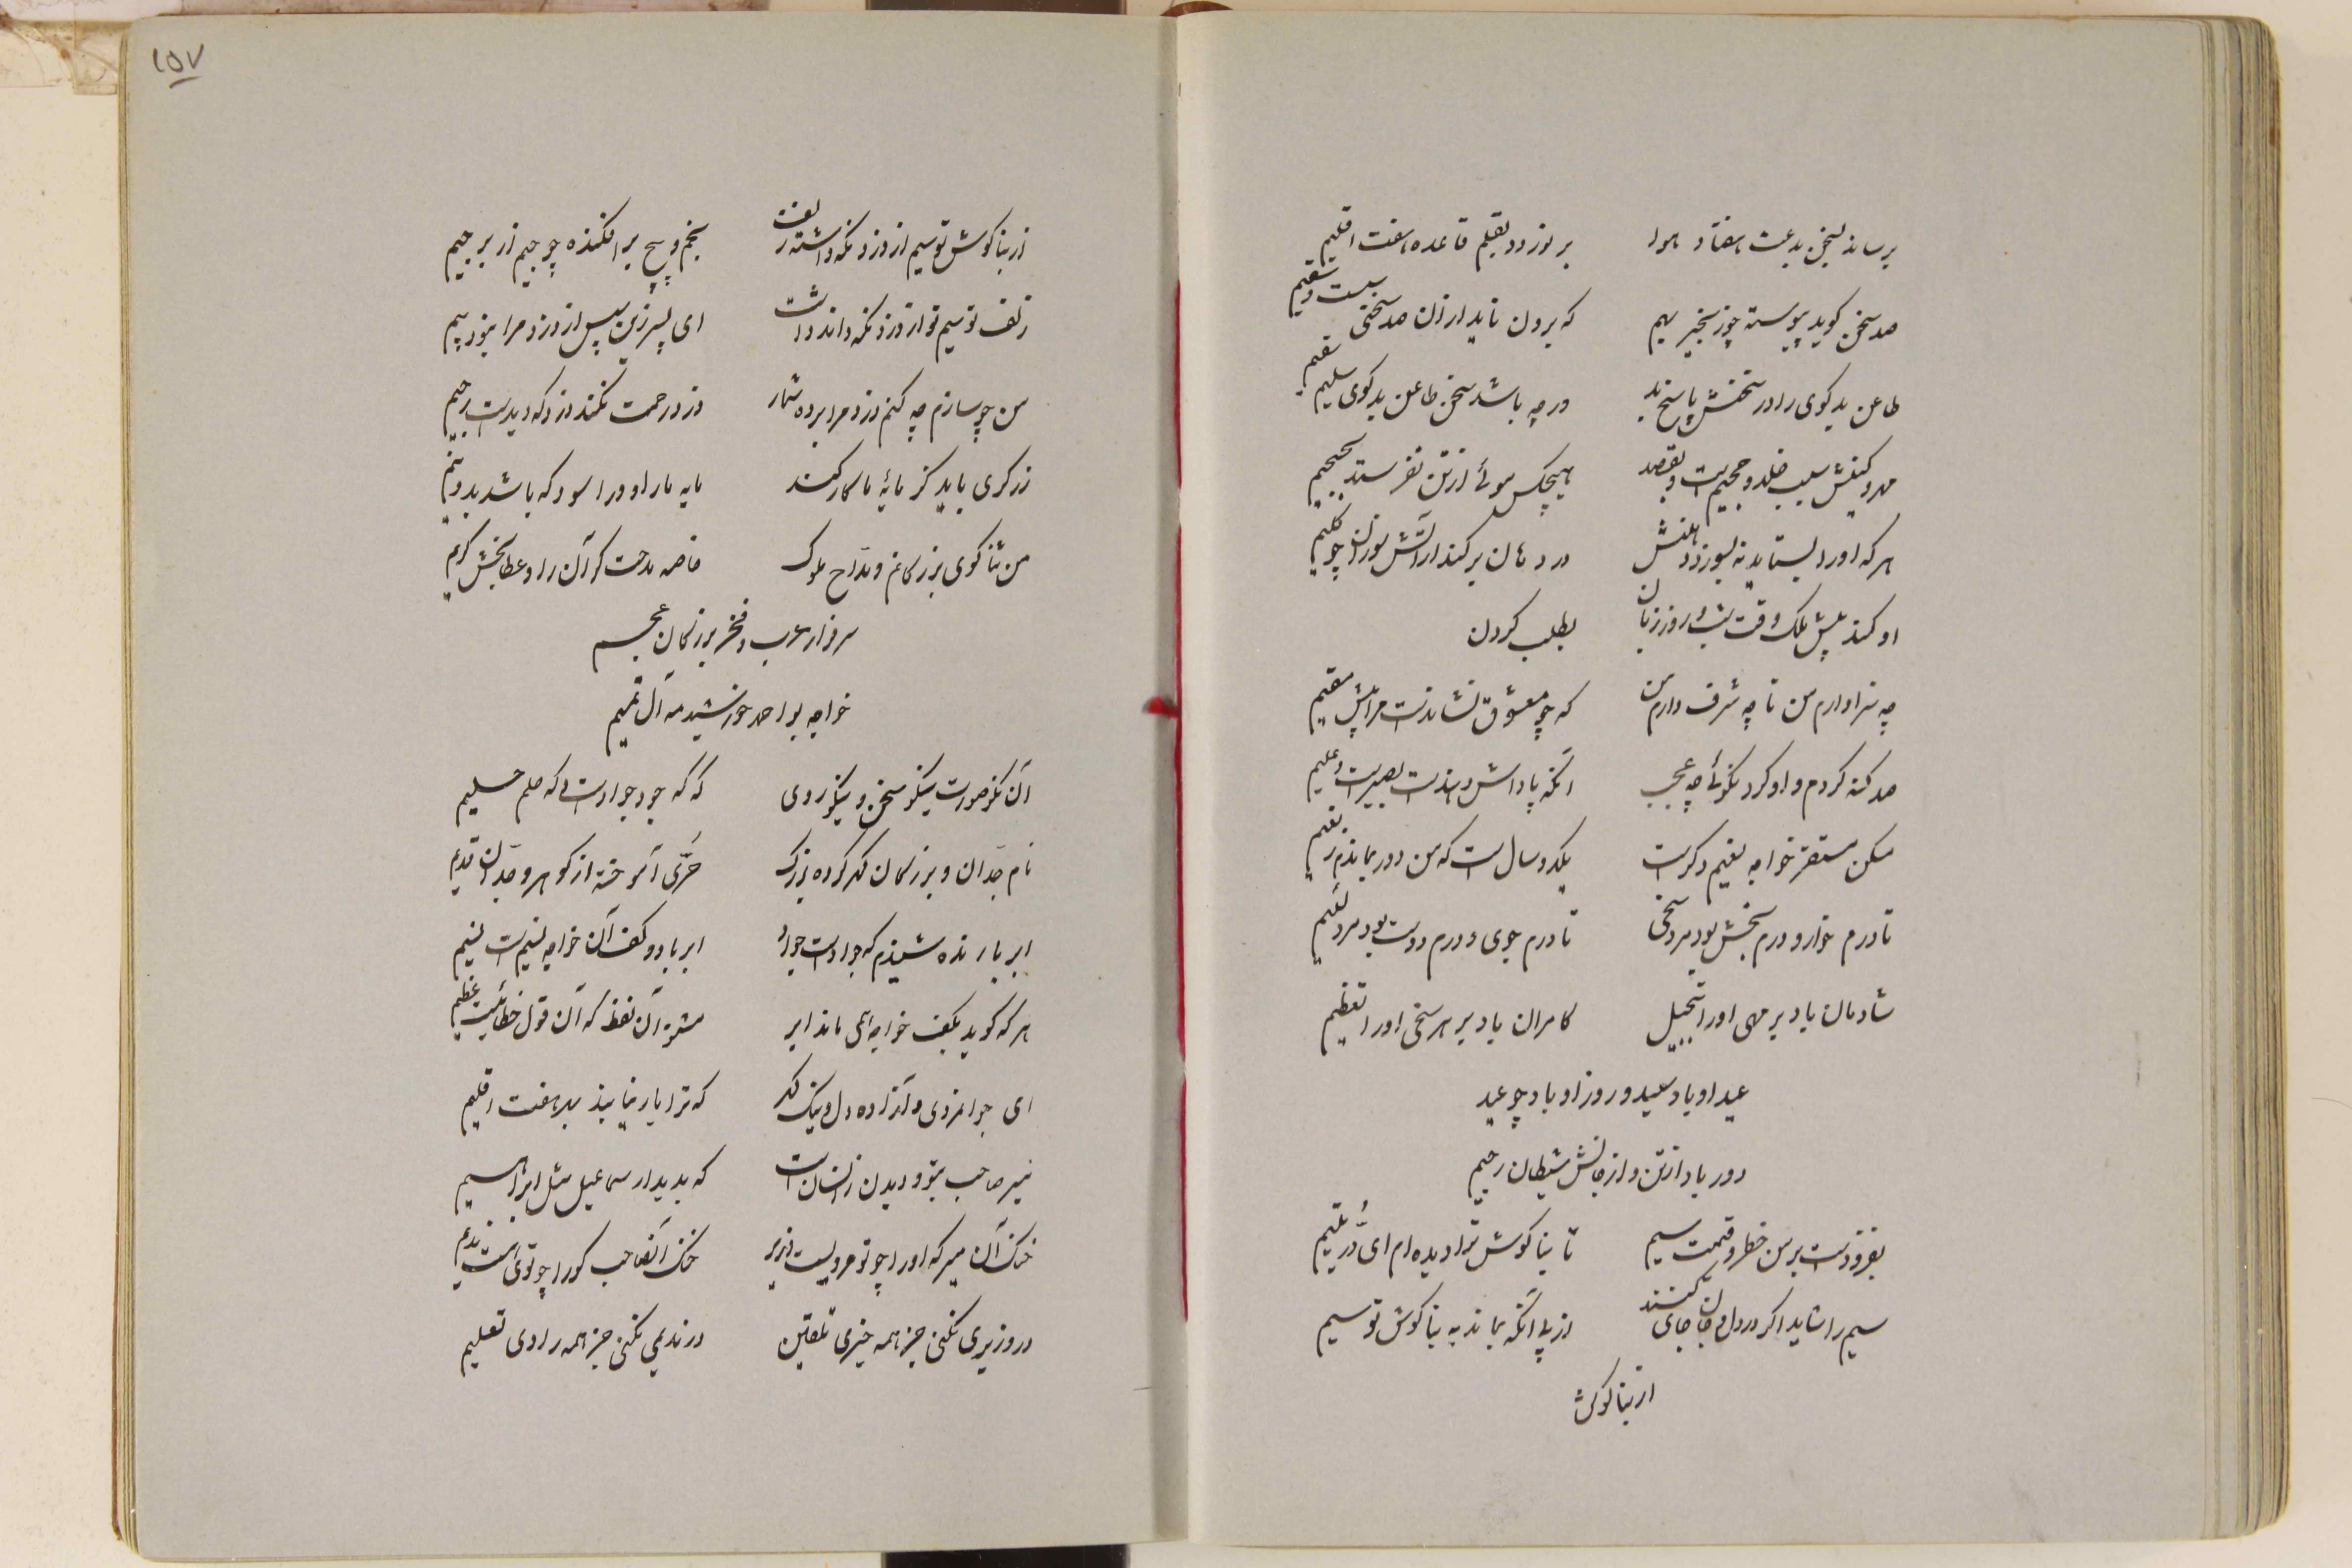 برساند بسخن بدعت هفتاد هوا
بر نوردد بقلم قاعده هفت اقلیم
صد سخن گوید پیوسته چو زنجیر بهم
که برون ناید از ان صد سخنی بیست و سقیم
طاعن بدگوی را در سخنش پاسخ ند
ور چه باشد سخن طاعن بدگوی سلیم سقیم
مهر و کینش سبب خلد و جحیمست و بقصد
هیچکس موئی از تن نفرستد بجحیم
هر که او را بستاید نه بسوزد دهنش
در دهان برکند از آتش سوزان چو کلیم
او کند پیش ملک وقت شب و روز زبان
بطلب کردن
چه سزاوارم من تا چه شرف دارم من
که چو معشوق نشاندست مرا پیش مقیم
صد گنه کردم و او کرد نکوئی چه عجب
انکه پاداش دهنست بصیرست و علیم
مسکن مستقر خواجه نعیم دگرست
یکدو سال است که من دور بماندم ز نعیم
تا درم خوار و درم بخش بود مرد سخی
تا درم جوی و درم دوست بود مرد لئیم
شادمان باد بر مهی او را تبجیل
کامران باد بر هر سخی او را تعظیم
عید او باد سعید و روز او باد چو عید
دور باد از تن و از جانش شیطان رجیم
بفزودست بر من خطر و قیمت سیم
تا بناگوش ترا دیده ام ای دُر یتیم
سیم را شاید اگر در دل و جان جای کنند
از پی انکه بماند به بناگوش تو سیم
از بناگوش
۱۵۷
از بناگوش تو سیم از دزد نگه داشته زلف
بخم و پیچ برافکنده چو جیم از بر جیم
زلف تو سیم تو از دزد نگه داند داشت
ای پسر زین سپس از دزد مرا نبود بیم
من چه سازم چه کنم دزد مرا برده شمار
دزد رحمت نکند دزد که دیدست رحیم
زرگری باید کز مایهٔ ما کار کند
مایه ما را و ورا سود که باشد بدو نیم
من ثناگوی بزرگانم و مدّاح ملوک
خاصه مدحت گر آن راد عطا بخش کریم
سرفراز عرب و فخر بزرگان عجم
خواجه بو احمد خورشید مه آل تمیم
آن نکو صورت نیکو سخن و نیکو روی
که گه جود جوادست و گه حلم حلیم
نام جدّان و بزرگان گهر کرده بزرگ
حُرّی آموخته از گوهر و جدّان قدیم
ابر بارنده شنیدم که جوادست جواد
ابر با دو کف آن خواجه لئیم است لئیم
هر که گوید بکف خواجه همی ماند ابر
مشنو آن لفظ که آن قول خطائیست عظیم
ای جوانمردی و آزاده دل و نیک گهر
که ترا یار نیابند بهر هفت اقلیم
میر صاحب بتو و دیدن زانسان است
که بدیدار سماعیل مثل ابراهیم
خنک آن میر که او را چو تو مردیست وزیر
خنک آنصاحب کورا چو توی است ندیم
در وزیری نکنی جز همه خیری تلقین
در ندیمی نکنی جز همه رادی تعلیم